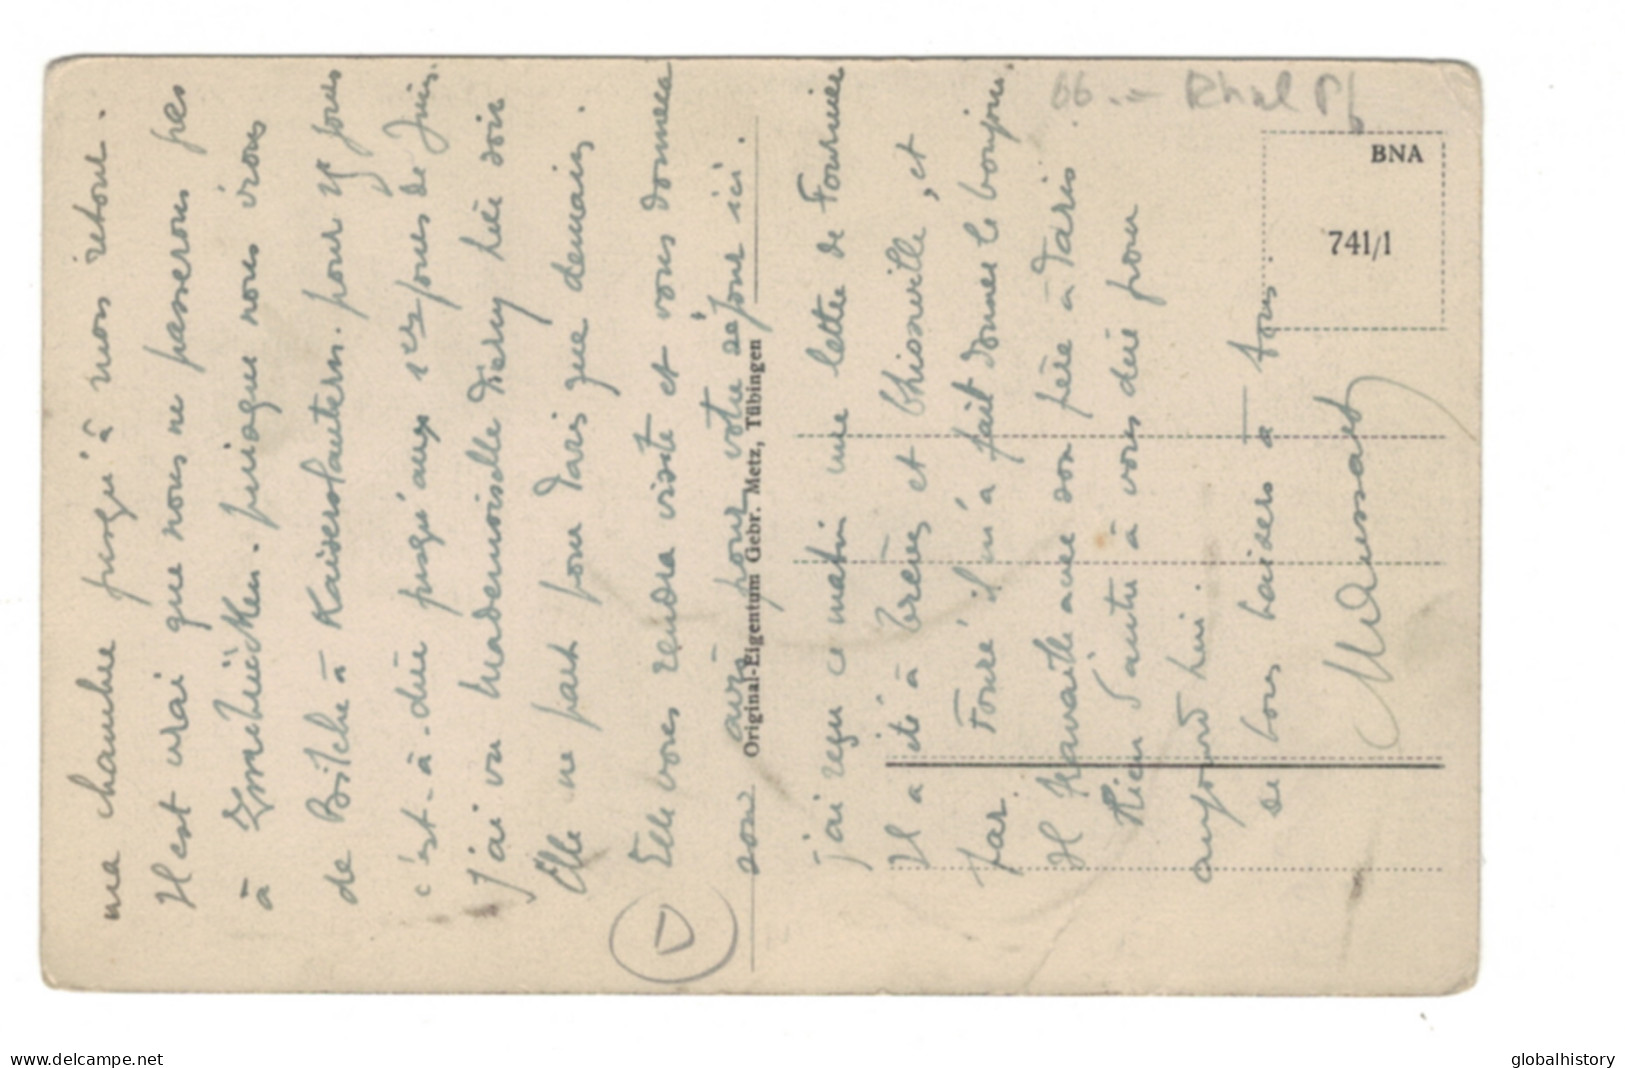 ma chambre jusqu'à mon retour.
Il est vrai que nous ne passerons pas
à Zweibrücken. puisque nous irons
de Bitche à Kaiserslautern. pour 15 jours
c'est-à-dire jusqu'aux 1ers jours de Juin.
J'ai vu Mademoiselle Dierry hier soir
Elle ne part pour Paris que demain.
Elle vous rendra visite et vous donnera
son avis pour votre séjour ici.
j'ai reçu ce matin une lettre de Fournier
Il a été à Brêves et , et
par Fouré il m'a fait donner le bonjour.
Il travaille avec son père à Paris.
Rien d'autre à vous dire pour
aujourd'hui.
se bons baisers à tous.
Original-Eigentum Gebr. Metz, Tübingen
BNA
741/1
66 Rhld Pf
www.delcampe.net
globalhistory